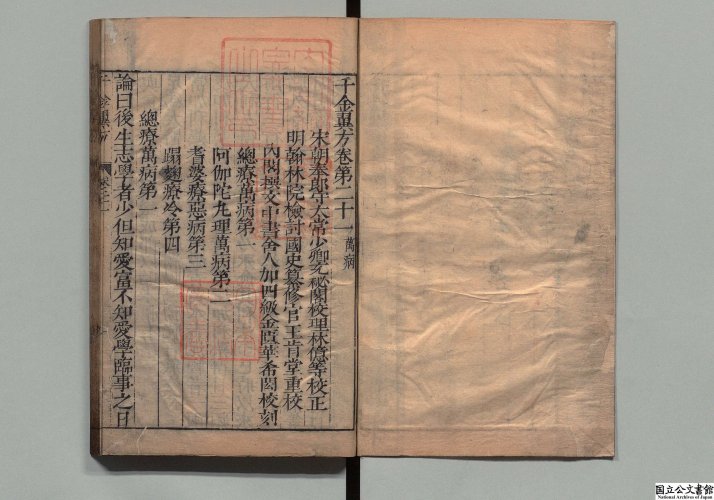 千金翼方卷第二十一 萬病
宋朝奉郎守太常少卿充秘閣校理林億等校正
明翰林院檢討國史纂修官王肯堂重校
內閣撰文中書舍人加四級金匱華希閎校刻
總療萬病第一
阿伽陀丸理萬病第二
耆婆療惡病第三
蹋麴療冷第四
總療萬病第一
論曰後生志學者少但知愛富不知愛學臨事之日
千金翼方
国立公文書館
National Archives of Japan